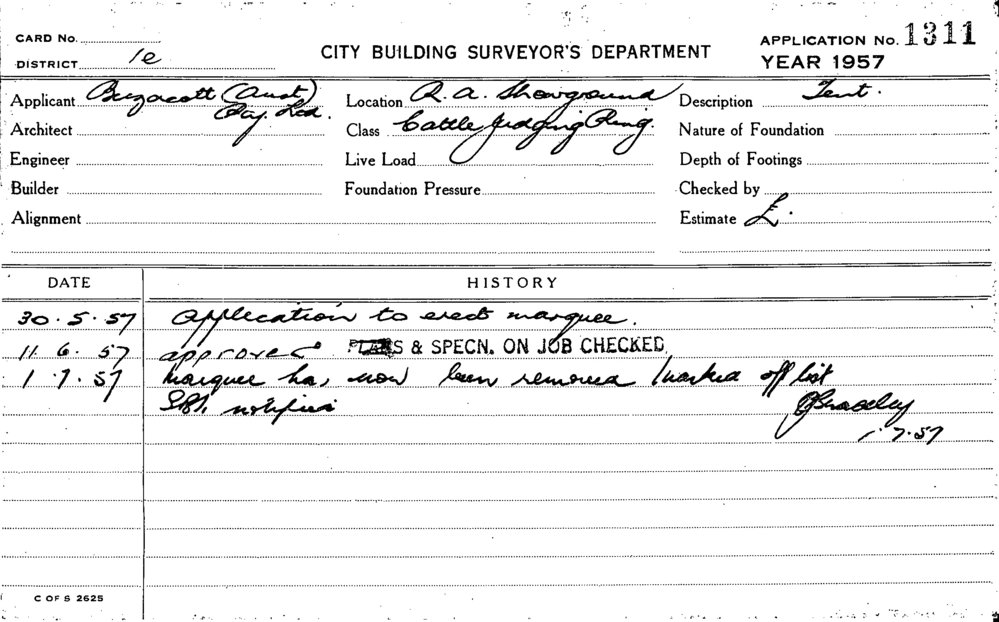 CARD No.
DISTRICT 1e
CITY BUILDING SURVEYOR'S DEPARTMENT
APPLICATION No. 1311
YEAR 1957
Applicant Buzacott (Aust)
Pty. Ltd.
Location R. A. Showground
Description Tent.
Architect
Class Cattle Judging Ring.
Nature of Foundation
Engineer
Live Load
Depth of Footings
Builder
Foundation Pressure
Checked by
Alignment
Estimate £.
DATE HISTORY
30.5.57 Application to erect marquee.
11.6.57 approved PLANS & SPECN. ON JOB CHECKED
1.7.57 Marquee has now been removed / marked off list
notified
1.7.57
C OF S 2625